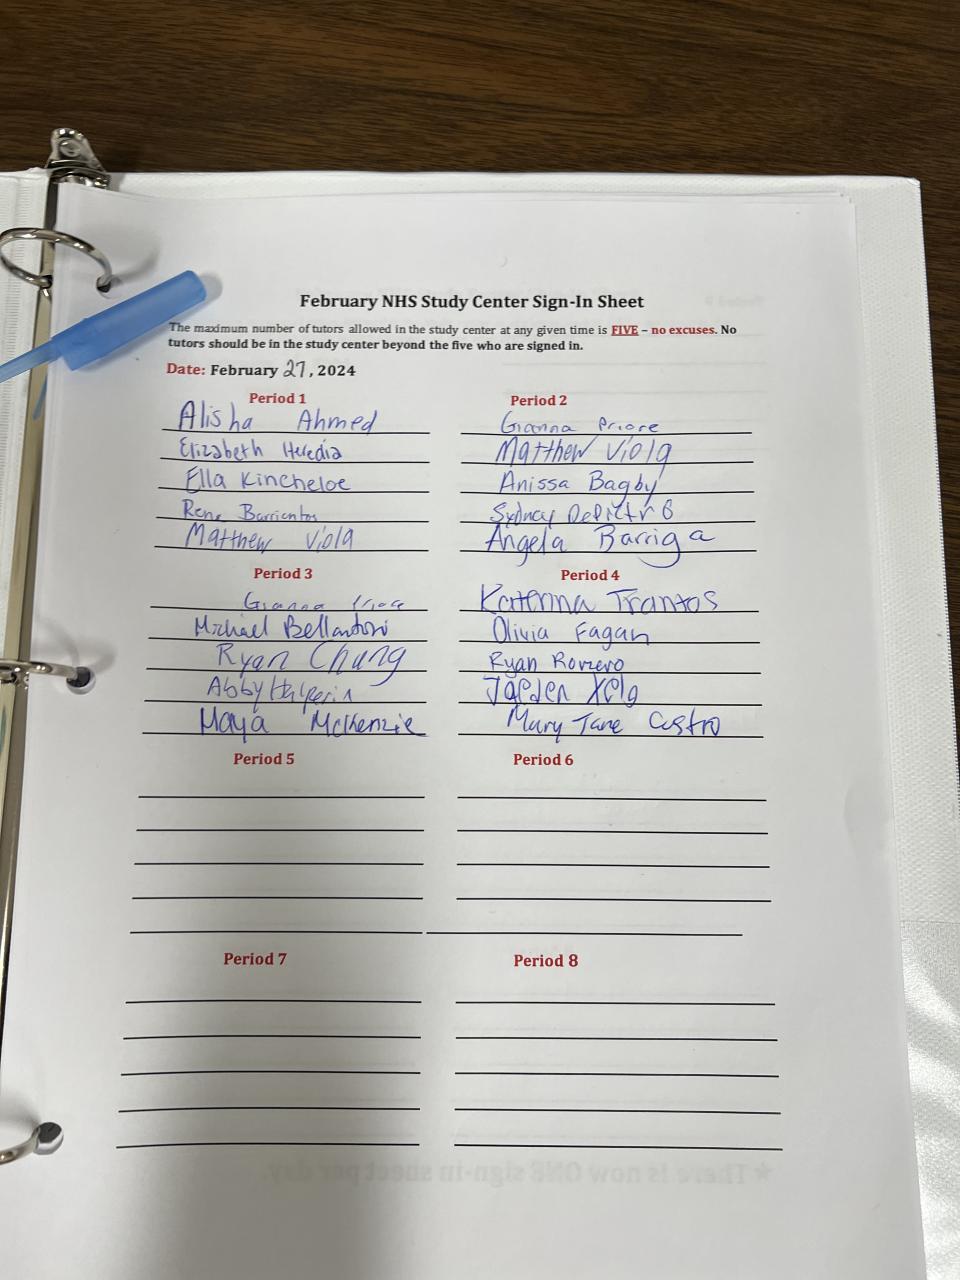 February NHS Study Center Sign-In Sheet
The maximum number of tutors allowed in the study center at any given time is FIVE – no excuses. No
tutors should be in the study center beyond the five who are signed in.
Date: February 27, 2024
Period 1
Alisha Ahmed
Elizabeth Heredia
Ella Kincheloe
Rene Barrientos
Matthew Viola
Period 2
Gianna Priore
Matthew Viola
Anissa Bagby
Sydney
Angela Barriga
Period 3
Gianna Priore
Michael Bellantoni
Ryan Chung
Abby Halperin
Maya McKenzie
Period 4
Katerina Trantos
Olivia Fagan
Ryan Romero
Jaeden
Mary Jane Castro
Period 5
Period 6
Period 7
Period 8
★ There is now ONE sign-in sheet per day.